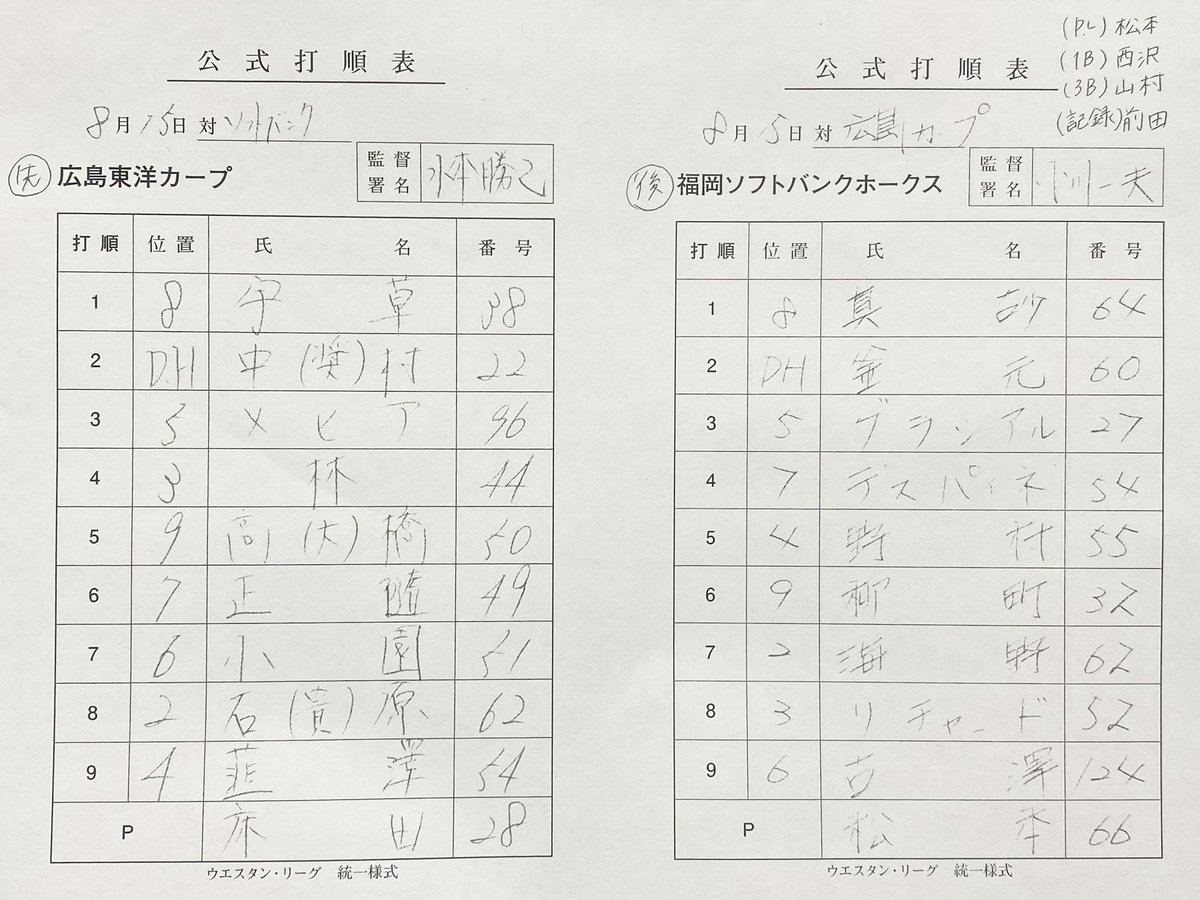 公式打順表
8月15日 対 ソフトバンク
先 広島東洋カープ 監督署名 水本勝己
打順 位置 氏名 番号
1 8 宇草 38
2 D.H 中(奨)村 22
3 5 メヒア 96
4 3 林 44
5 9 高(大)橋 50
6 7 正隨 49
7 6 小園 51
8 2 石(貴)原 62
9 4 韮澤 54
P 床田 28
ウエスタン・リーグ 統一様式
(P.L) 松本
(1B) 西沢
(3B) 山村
(記録) 前田
公式打順表
8月15日 対 広島カープ
後 福岡ソフトバンクホークス 監督署名 小川一夫
打順 位置 氏名 番号
1 8 真砂 64
2 DH 釜元 60
3 5 グラシアル 27
4 7 デスパイネ 54
5 4 野村 55
6 9 柳町 32
7 2 海野 62
8 3 リチャード 52
9 6 古澤 124
P 松本 66
ウエスタン・リーグ 統一様式